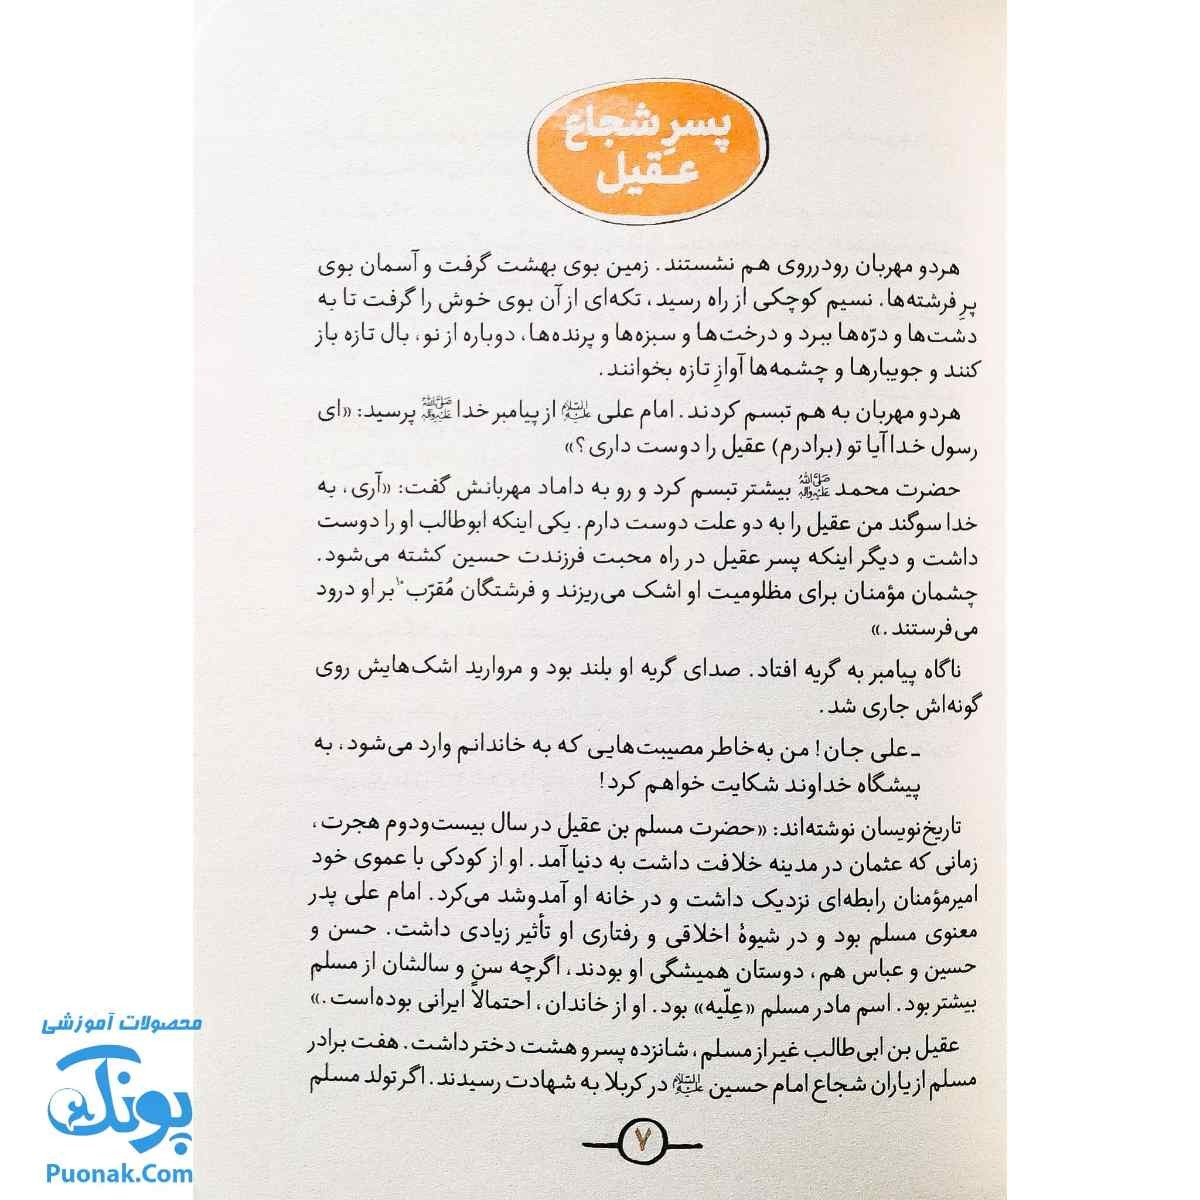 پسرِ شجاع
عـقیل
هردو مهربان رودرروی هم نشستند. زمین بوی بهشت گرفت و آسمان بوی
پرِ فرشته‌ها. نسیم کوچکی از راه رسید، تکه‌ای از آن بوی خوش را گرفت تا به
دشت‌ها و درّه‌ها ببرد و درخت‌ها و سبزه‌ها و پرنده‌ها، دوباره از نو، بال تازه باز
کنند و جویبارها و چشمه‌ها آوازِ تازه بخوانند.
هردو مهربان به هم تبسم کردند. امام علی علیه‌السلام از پیامبر خدا صلی‌الله‌علیه‌وآله پرسید: «ای
رسول خدا آیا تو (برادرم) عقیل را دوست داری؟»
حضرت محمد صلی‌الله‌علیه‌وآله بیشتر تبسم کرد و رو به داماد مهربانش گفت: «آری، به
خدا سوگند من عقیل را به دو علت دوست دارم. یکی اینکه ابوطالب او را دوست
داشت و دیگر اینکه پسر عقیل در راه محبت فرزندت حسین کشته می‌شود.
چشمان مؤمنان برای مظلومیت او اشک می‌ریزند و فرشتگان مُقرّب۱۰ بر او درود
می‌فرستند.»
ناگاه پیامبر به گریه افتاد. صدای گریه او بلند بود و مروارید اشک‌هایش روی
گونه‌اش جاری شد.
ـ علی جان! من به‌خاطر مصیبت‌هایی که به خاندانم وارد می‌شود، به
پیشگاه خداوند شکایت خواهم کرد!
تاریخ‌نویسان نوشته‌اند: «حضرت مسلم بن عقیل در سال بیست‌ودوم هجرت،
زمانی که عثمان در مدینه خلافت داشت به دنیا آمد. او از کودکی با عموی خود
امیرمؤمنان رابطه‌ای نزدیک داشت و در خانه او آمدوشد می‌کرد. امام علی پدر
معنوی مسلم بود و در شیوۀ اخلاقی و رفتاری او تأثیر زیادی داشت. حسن و
حسین و عباس هم، دوستان همیشگی او بودند، اگرچه سن و سالشان از مسلم
بیشتر بود. اسم مادر مسلم «عِلّیه» بود. او از خاندان، احتمالاً ایرانی بوده‌است.»
عقیل بن ابی‌طالب غیر از مسلم، شانزده پسر و هشت دختر داشت. هفت برادر
مسلم از یاران شجاع امام حسین علیه‌السلام در کربلا به شهادت رسیدند. اگر تولد مسلم
۷
محصولات آموزشی
پونک
Puonak.Com